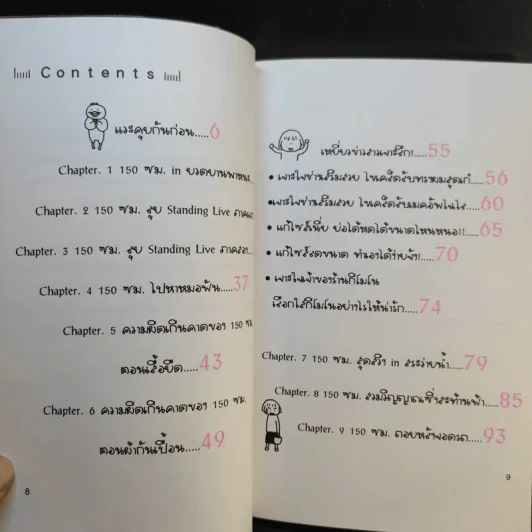 Contents
แวะคุยกันก่อน.....6
Chapter. 1 150 ซม. in ยวดยานพาหนะ
Chapter. 2 150 ซม. ลุย Standing Live ภาคแรก
Chapter. 3 150 ซม. ลุย Standing Live ภาคสอง
Chapter. 4 150 ซม. ไปหาหมอฟัน.....37
Chapter. 5 ความผิดเกินคาดของ 150 ซม.
ตอนเสื้อยืด.....43
Chapter. 6 ความผิดเกินคาดของ 150 ซม.
ตอนผ้ากันเปื้อน.....49
8
เหยี่ยวข่าวสาวเจาะลึก!.....55
• เจาะใจช่างเสริมสวย ไขเคล็ดลับทรงผมสุดเก๋.....56
•เจาะใจช่างเสริมสวย ไขเคล็ดลับเมคอัพไฉไล.....60
• แก้ไซส์เนี่ย ย่อได้หดได้ขนาดไหนหนอ!?.....65
• แก้ไซส์ลดขนาด ทำเองได้ง่ายจัง!.....70
• เจาะใจเจ้าของร้านกิโมโน
เลือกใส่กิโมโนอย่างไรให้น่ารัก.....74
Chapter. 7 150 ซม. สุดสวิง in สระว่ายน้ำ.....79
Chapter. 8 150 ซม. รวมวิญญาณซิ่งสะท้านฟ้า.....85
Chapter. 9 150 ซม. ถอยหลังจอดรถ.....93
9